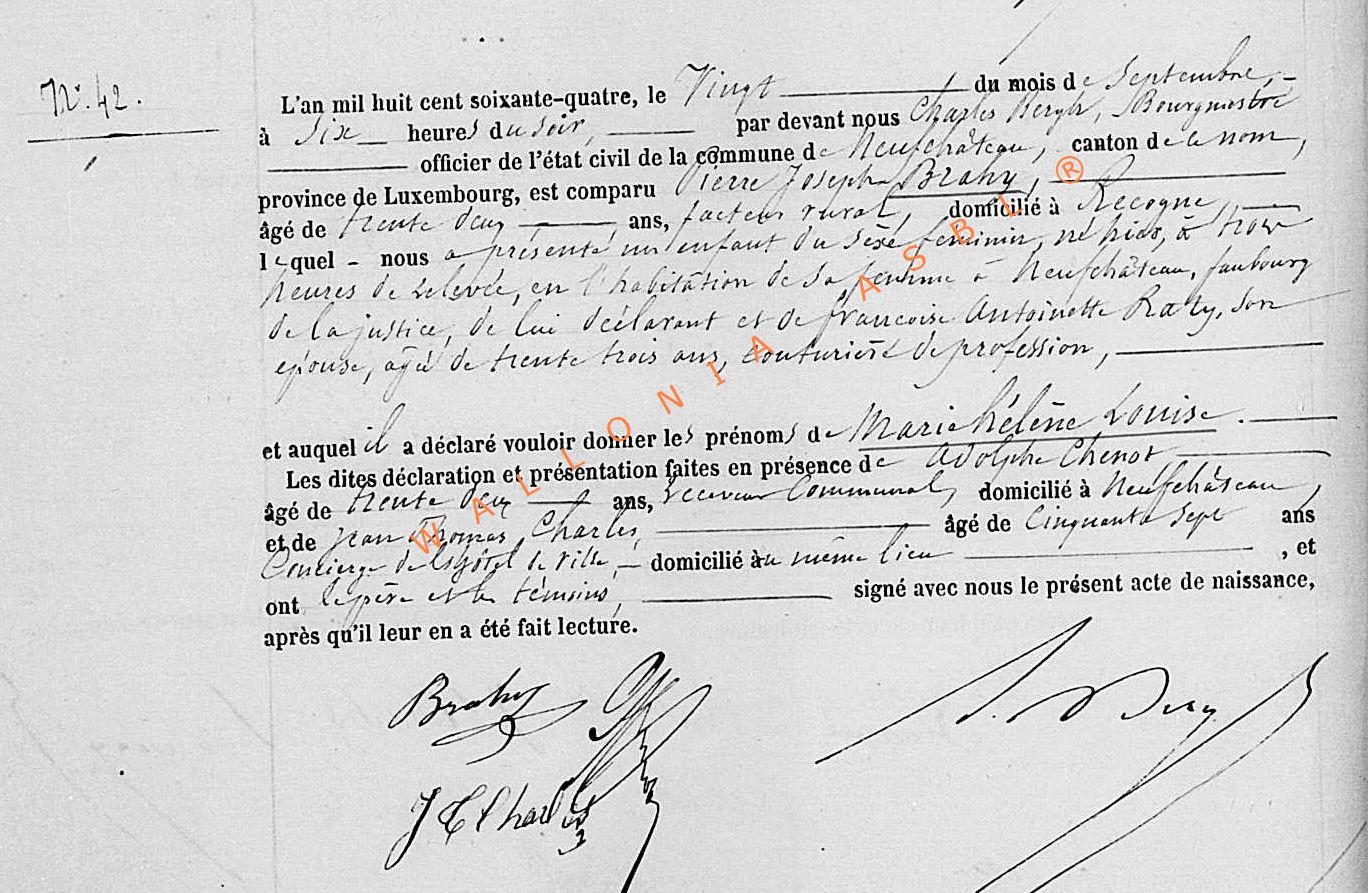 N°. 42.
L'an mil huit cent soixante-quatre, le Vingt du mois de Septembre,
à Six heures du soir, par devant nous Charles Bergh, Bourgmestre
officier de l'état civil de la commune de Neufchâteau, canton de ce nom,
province de Luxembourg, est comparu Pierre Joseph Brahy,
âgé de trente deux ans, facteur rural, domicilié à Recogne,
lequel nous a présenté un enfant du sexe féminin, né hier, à trois
heures de relevée, en l'habitation de sa femme à Neufchâteau, faubourg
de la justice, de lui déclarant et de françoise Antoinette Raty, son
épouse, agée de trente trois ans, couturière de profession,
et auquel il a déclaré vouloir donner les prénoms de Marie Hélène Louise.
Les dites déclaration et présentation faites en présence de Adolphe Chenot
âgé de trente deux ans, receveur Communal, domicilié à Neufchâteau,
et de Jean Thomas Charles, âgé de Cinquante Sept ans
Concierge de l'hôtel de Ville, domicilié au même lieu, et
ont le père et les témoins, signé avec nous le présent acte de naissance,
après qu'il leur en a été fait lecture.
Brahy
J T Charles
WALLONIA ASBL ®